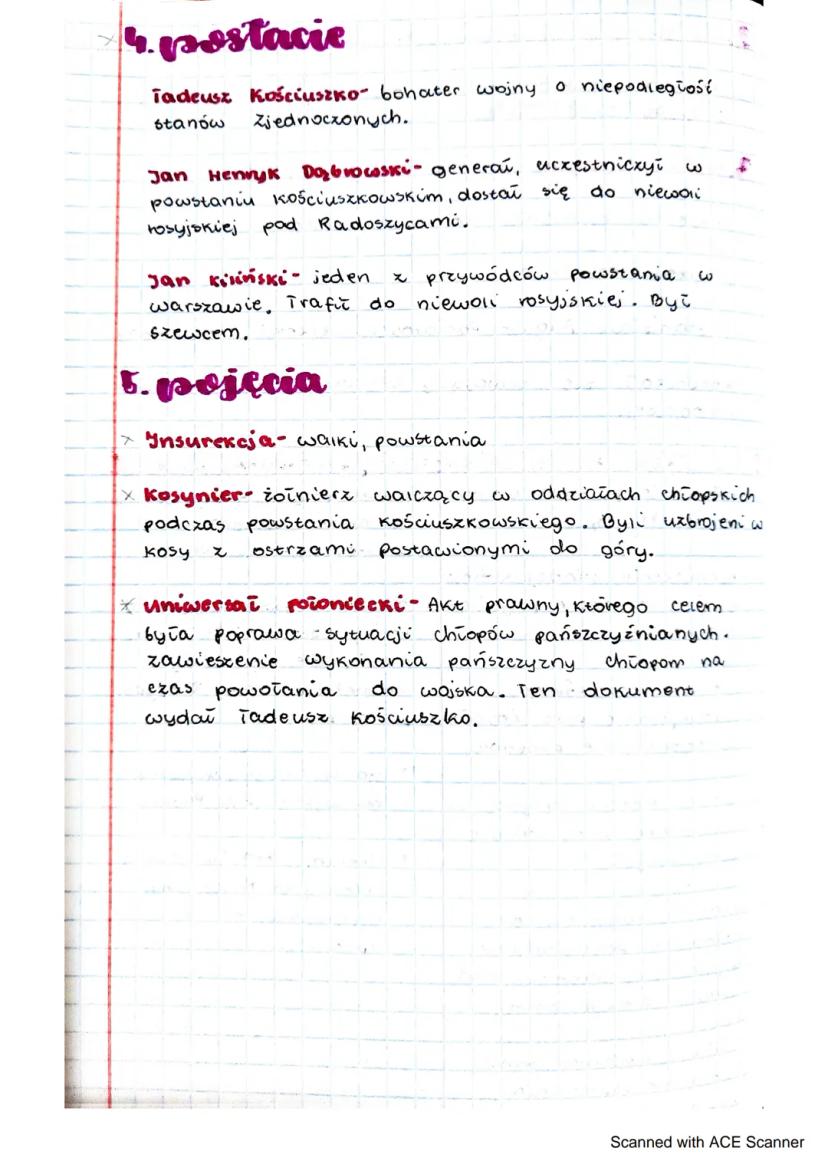 4. postacie
Tadeusz Kościuszko- bohater wojny o niepodległość
stanów Zjednoczonych.
Jan Henryk Dąbrowski- generał, uczestniczył w
powstaniu kościuszkowskim, dostał się do niewoli
rosyjskiej pod Radoszycami.
Jan Kiliński- jeden z przywódców powstania w
warszawie. Trafił do niewoli rosyjskiej. Był
szewcem.
5. pojęcia
Insurekcja- walki, powstania
Kosynier- żołnierz walczący w oddziałach chłopskich
podczas powstania kościuszkowskiego. Byli uzbrojeni w
kosy z ostrzami postawionymi do góry.
uniwersał połoniecki- Akt prawny, którego celem
była poprawa sytuacji chłopów pańszczyźnianych.
zawieszenie wykonania pańszczyzny chłopom na
czas powołania do wojska. Ten dokument
wydał Tadeusz Kościuszko.
Scanned with ACE Scanner